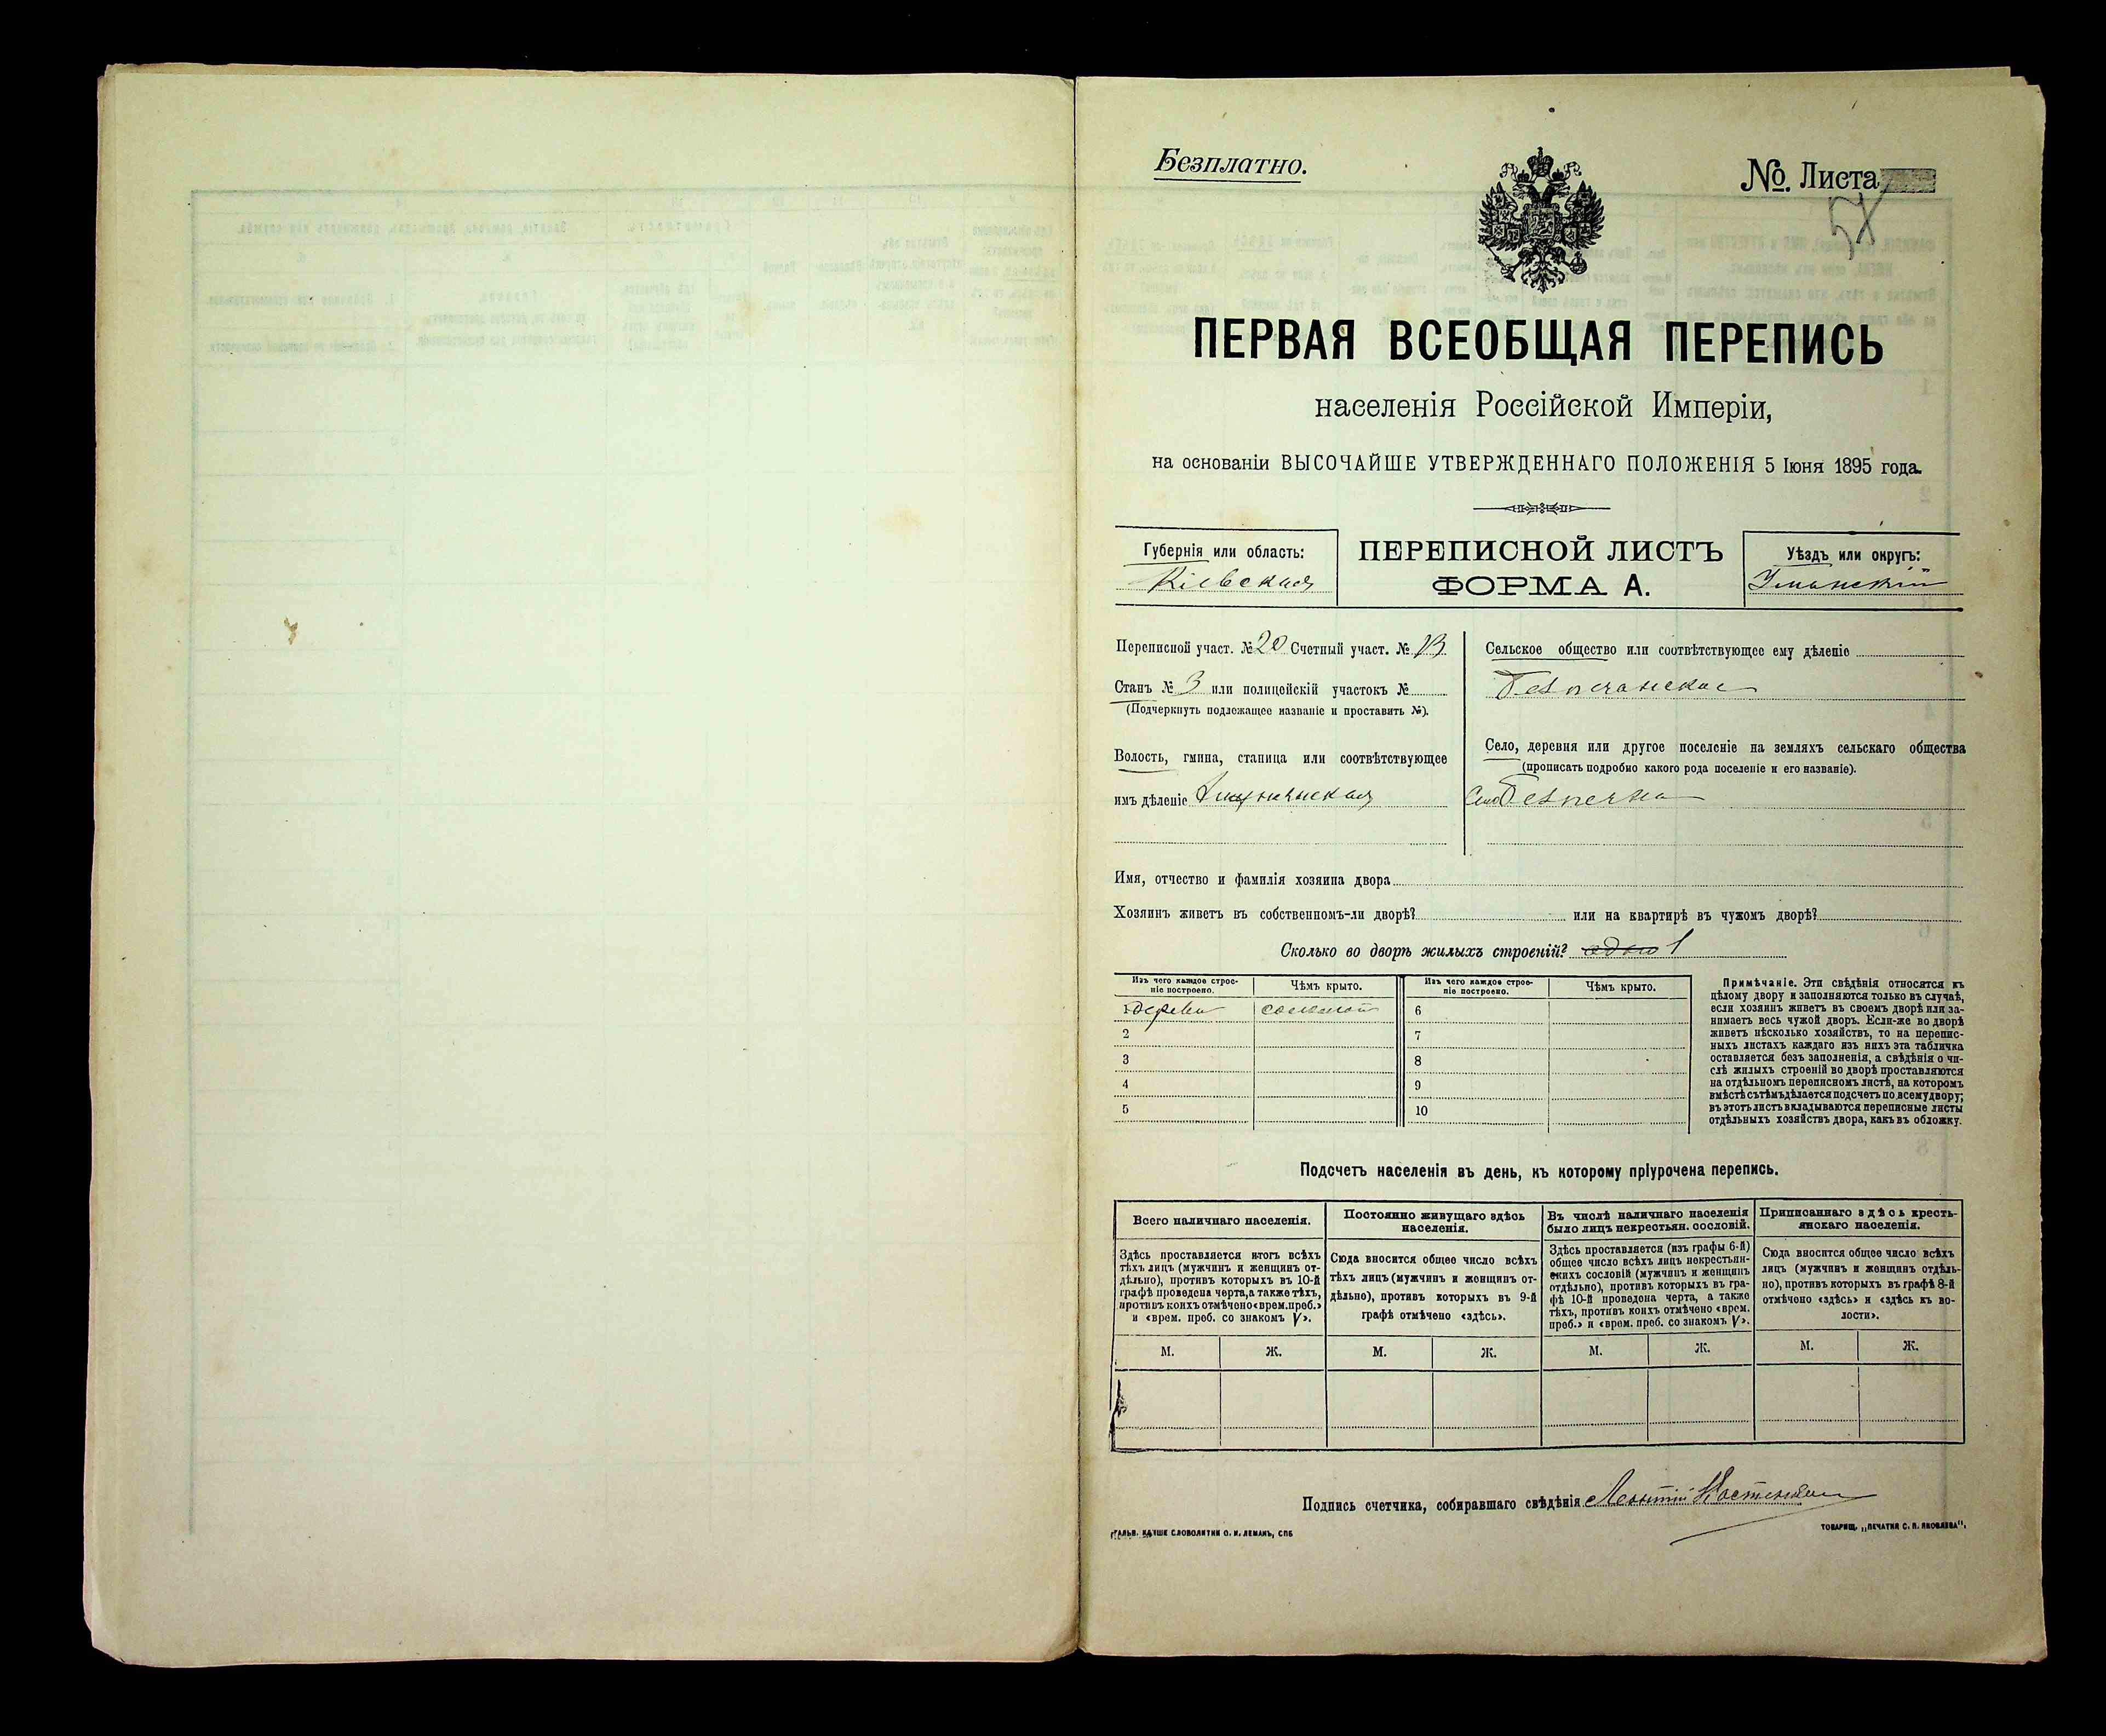 Безплатно.
№ Листа 57
ПЕРВАЯ ВСЕОБЩАЯ ПЕРЕПИСЬ
населенія Россійской Имперіи,
на основаніи ВЫСОЧАЙШЕ УТВЕРЖДЕННАГО ПОЛОЖЕНІЯ 5 Іюня 1895 года.
Губернія или область:
Кіевская
ПЕРЕПИСНОЙ ЛИСТЪ
ФОРМА А.
Уѣздъ или округъ:
Уманскій
Переписной участ. № 20 Счетный участ. № 13
Станъ № 3 или полицейскій участокъ №
(Подчеркнуть подлежащее названіе и проставить №).
Волость, гмина, станица или соотвѣтствующее
имъ дѣленіе
Сельское общество или соотвѣтствующее ему дѣленіе
Безпечанское
Село, деревня или другое поселеніе на земляхъ сельскаго общества
(прописать подробно какого рода поселеніе и его названіе).
Село Безпечна
Имя, отчество и фамилія хозяина двора
Хозяинъ живетъ въ собственномъ-ли дворѣ? или на квартирѣ въ чужомъ дворѣ?
Сколько во дворѣ жилыхъ строеній? одно 1
Изъ чего каждое строе-
ніе построено.
Чѣмъ крыто.
Изъ чего каждое строе-
ніе построено.
Чѣмъ крыто.
1 дерева соломой 6
2 7
3 8
4 9
5 10
Примѣчаніе. Эти свѣдѣнія относятся къ
цѣлому двору и заполняются только въ случаѣ,
если хозяинъ живетъ въ своемъ дворѣ или за-
нимаетъ весь чужой дворъ. Если-же во дворѣ
живетъ нѣсколько хозяйствъ, то на перепис-
ныхъ листахъ каждаго изъ нихъ эта табличка
оставляется безъ заполненія, а свѣдѣнія о чи-
слѣ жилыхъ строеній во дворѣ проставляются
на отдѣльномъ переписномъ листѣ, на которомъ
вмѣстѣ съ тѣмъ дѣлается подсчетъ по всему двору;
въ этотъ листъ вкладываются переписные листы
отдѣльныхъ хозяйствъ двора, какъ въ обложку.
Подсчетъ населенія въ день, къ которому пріурочена перепись.
Всего наличнаго населенія.
Здѣсь проставляется итогъ всѣхъ
тѣхъ лицъ (мужчинъ и женщинъ от-
дѣльно), противъ которыхъ въ 10-й
графѣ проведена черта, а также тѣхъ,
противъ коихъ отмѣчено «врем. преб.»
и «врем. преб. со знакомъ V».
Постоянно живущаго здѣсь
населенія.
Сюда вносится общее число всѣхъ
тѣхъ лицъ (мужчинъ и женщинъ от-
дѣльно), противъ которыхъ въ 9-й
графѣ отмѣчено «здѣсь».
Въ числѣ наличнаго населенія
было лицъ некрестьян. сословій.
Здѣсь проставляется (изъ графы 6-й)
общее число всѣхъ лицъ некрестьян-
скихъ сословій (мужчинъ и женщинъ
отдѣльно), противъ которыхъ въ гра-
фѣ 10-й проведена черта, а также
тѣхъ, противъ коихъ отмѣчено «врем.
преб.» и «врем. преб. со знакомъ V».
Приписаннаго здѣсь кресть-
янскаго населенія.
Сюда вносится общее число всѣхъ
лицъ (мужчинъ и женщинъ отдѣль-
но), противъ которыхъ въ графѣ 8-й
отмѣчено «здѣсь» и «здѣсь къ во-
лости».
М. Ж. М. Ж. М. Ж. М. Ж.
Подпись счетчика, собиравшаго свѣдѣнія
ГАЛЬВ. КЛИШЕ СЛОВОЛИТНИ О. И. ЛЕМАНЪ, СПБ
ТОВАРИЩ. „ПЕЧАТНЯ С. П. ЯКОВЛЕВА".